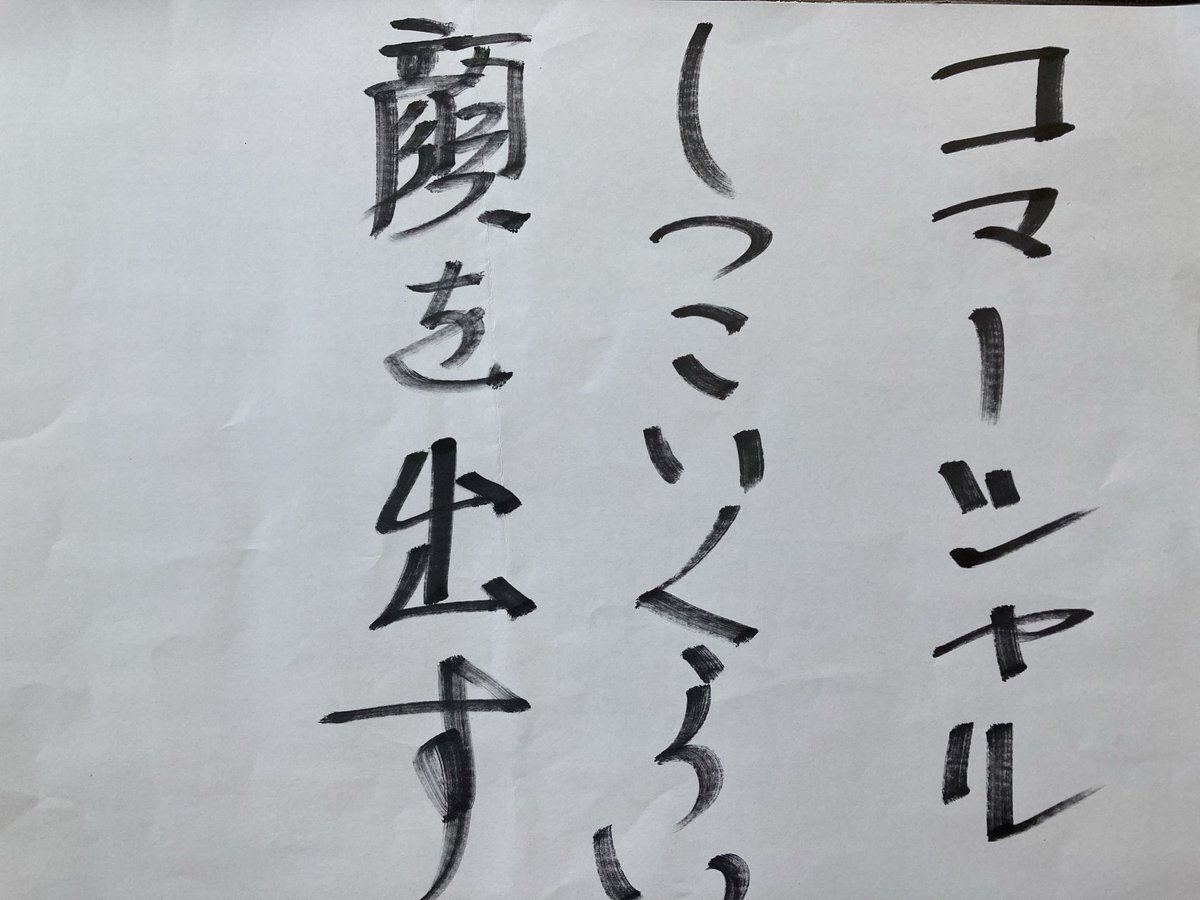 コマーシャル
しつこいくらい
顔を出す